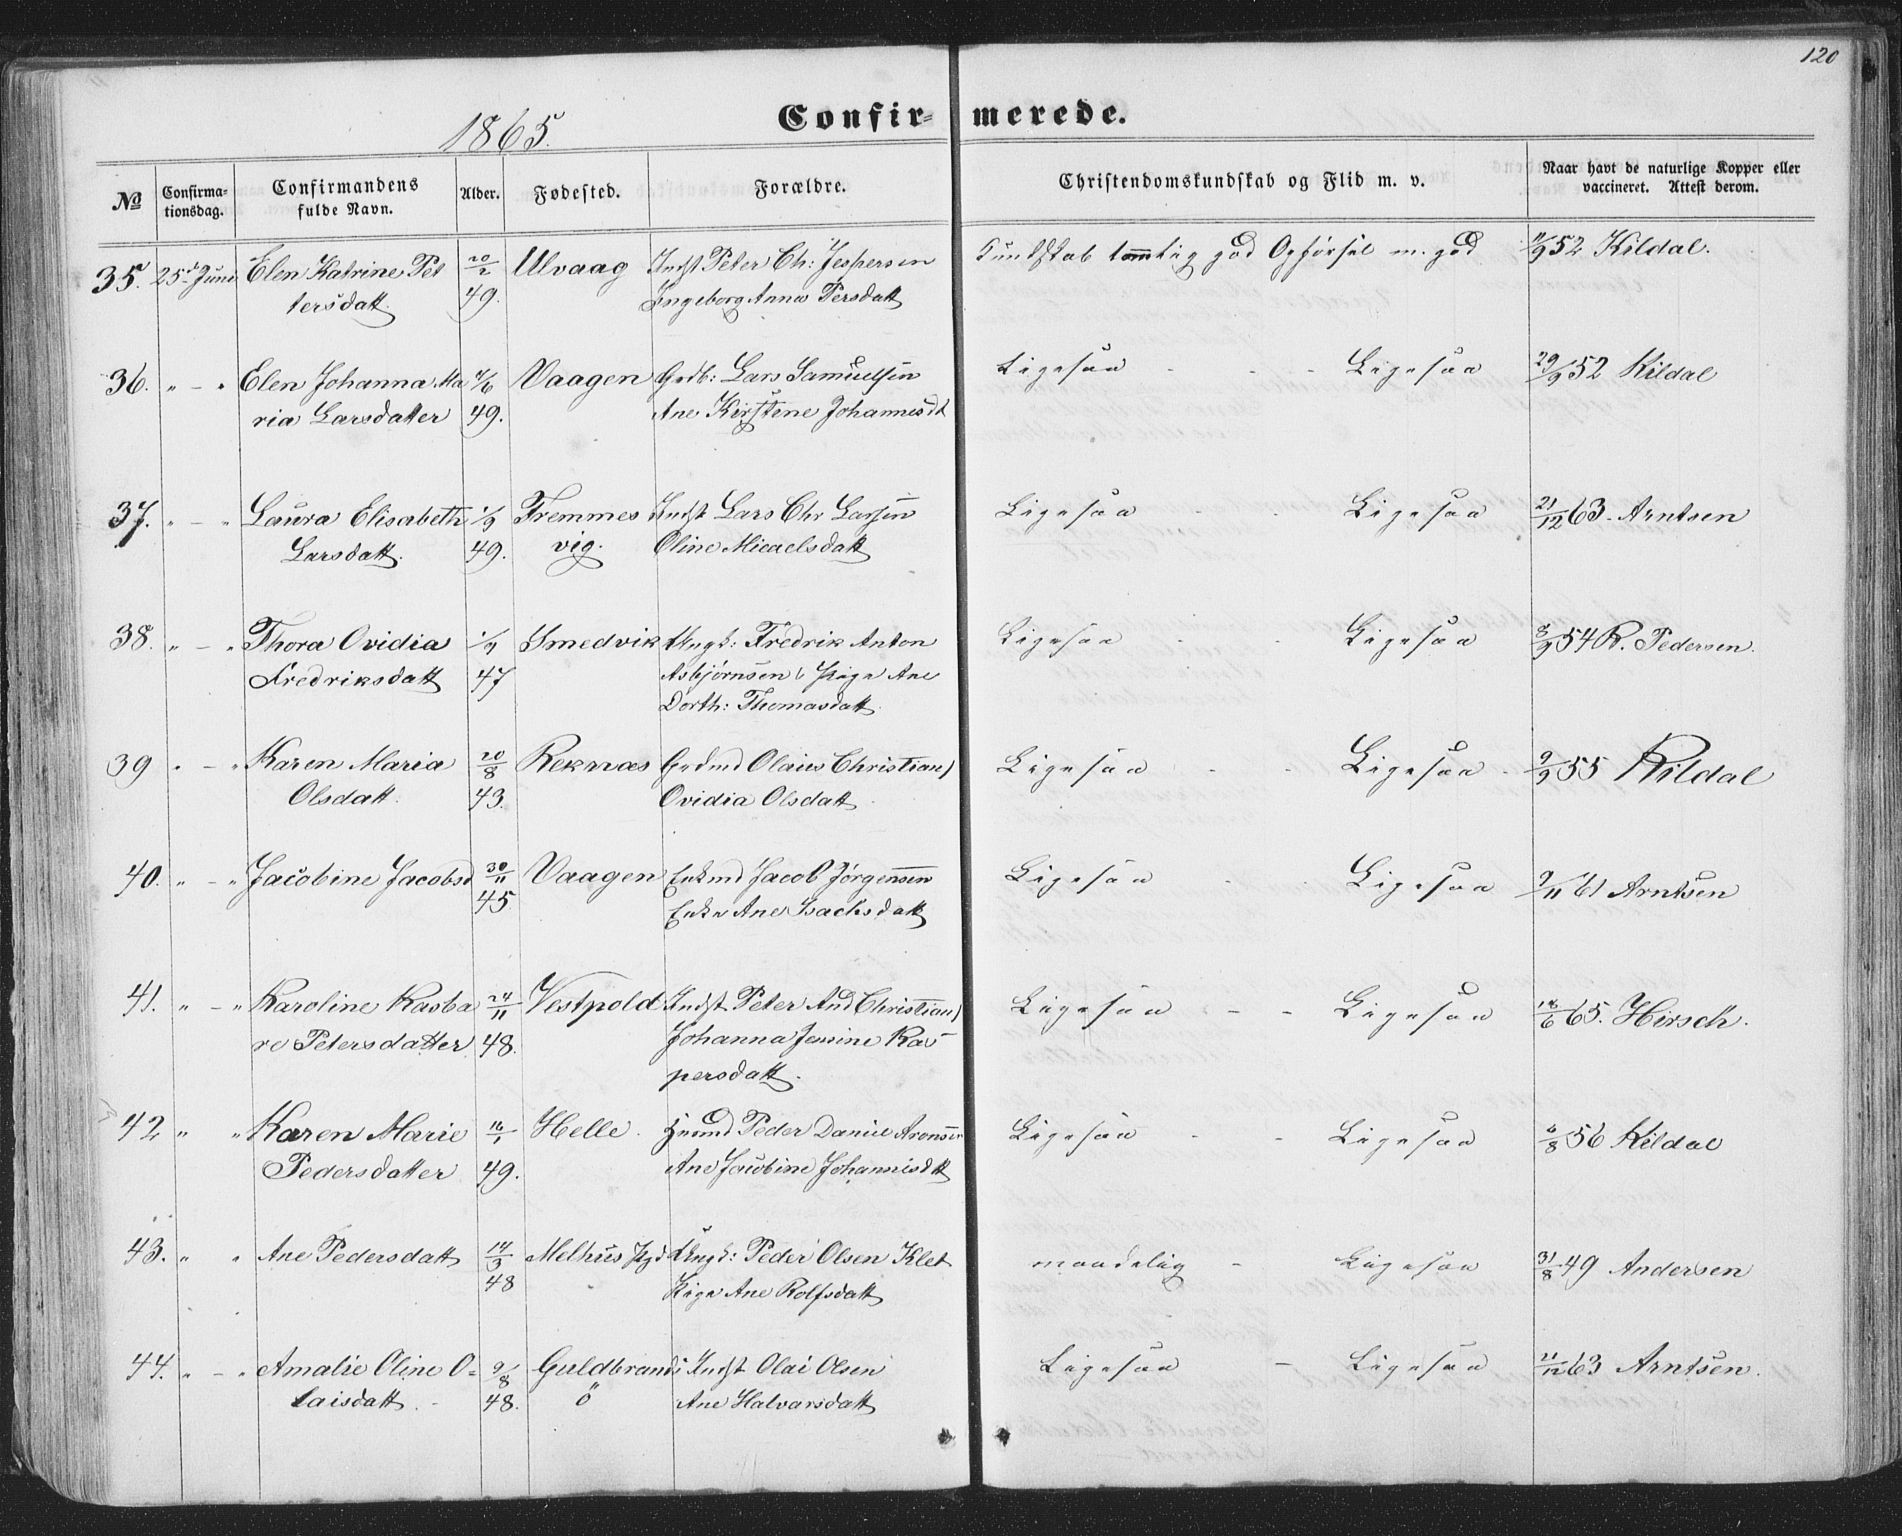 120
1865.
Confir= merede.
No Confirma-tionsdag. Confirmandens fulde Navn. Alder. Fødested. Forældre. Christendomskundskab og Flid m. v. Naar havt de naturlige Kopper eller vaccineret. Attest derom.
35. 25de Juni Elen Katrine Pet 20/2 Ulvaag Indst Peter Ch: Jespersen Kundskab temmelig god Opførsel m. god 11/9 52 Kildal.
tersdatt 49. Ingeborg Anna Persdatt
36. " - " Elen Johanna Ma 4/6 Vaagen Grdb: Lars Samuelsen Ligesaa - - - Ligesaa 29/9 52 Kildal
ria Larsdatter 49. Ane Kirstene Johannesdt
37. " - " Laura Elisabeth 1/9 Fremmes Indst Lars Chr Larsen Ligesaa - - Ligesaa 21/12 63. Arntsen
Larsdatt. 49. vig. Oline Micaelsdatt
38. " - " Thora Ovidia 1/9 Smedvik Ungk: Fredrik Anton Ligesaa - - Ligesaa 8/9 54 R. Pedersen.
Fredriksdatt 47 Asbjørnsen, Pige Ane
Dorth: Thomasdatt
39 " - " Karen Maria 20/8 Reknæs Grdmd Olaus Christians) Ligesaa - - Ligesaa - 9/9 55 Kildal
Olsdatt. 43. Ovidia Olsdatt
40. " - " Jacobine Jacobsd 30/11 Vaagen Enkmd Jacob Jørgensen Ligesaa - - Ligesaa 9/11 61 Arntsen
45. Enke Ane Isachsdatt
41. " - " Karoline Kasba 24/11 Vestpold Indst Peter And Christians) Ligesaa - - Ligesaa 18/6 65. Hirsch.
re Petersdatter 48. Johanna Jensine Kas
persdatt.
42 " " Karen Marie 16/1 Helle. Husmd Peder Daniel Aronsen Ligesaa - - Ligesaa 6/8 56 Kildal
Pedersdatter 49. Ane Jacobine Johannisdtt
43. " " Ane Pedersdatt 14/3 Melhus Pgd Ungk: Peder Olsen Klet maadelig - Ligesaa 31/8 49 Andersen
48 Pige Ane Rolfsdatt
44. " - " Amalie Oline O= 9/8 Guldbrands Indst Olai Olsen Ligesaa - Ligesaa 21/12 63 Arntsen.
laisdatt. 48. ö Ane Halvarsdatt